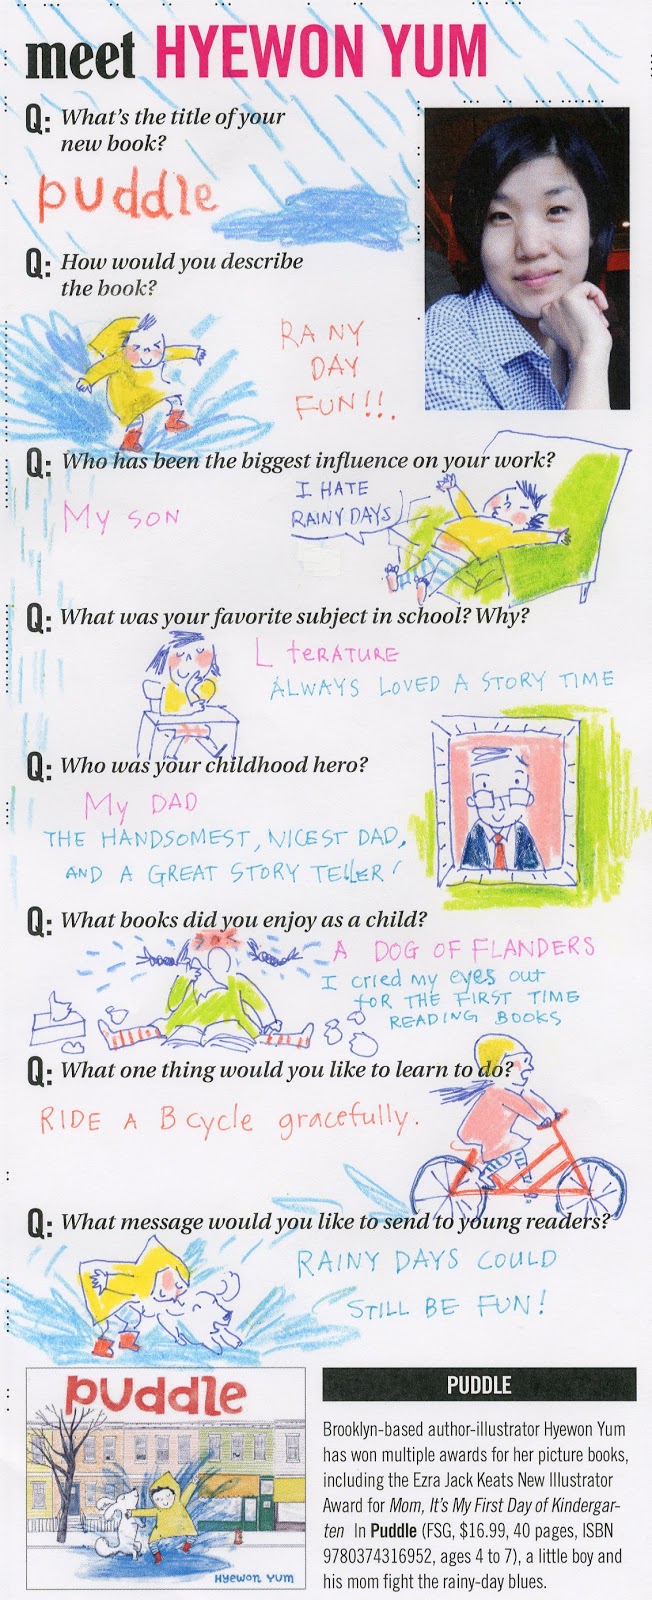 meet HYEWON YUM
Q: What's the title of your
new book?
puddle
Q: How would you describe
the book?
RAINY
DAY
FUN!!.
Q: Who has been the biggest influence on your work?
My SON
I HATE
RAINY DAYS
Q: What was your favorite subject in school? Why?
L terature
ALWAYS LOVED A STORY TIME
Q: Who was your childhood hero?
My DAD
THE HANDSOMEST, NICEST DAD,
AND A GREAT STORY TELLER!
Q: What books did you enjoy as a child?
A DOG OF FLANDERS
I cried my eyes out
for THE FIRST TIME
READING BOOKS
Q: What one thing would you like to learn to do?
RIDE A B cycle gracefully.
Q: What message would you like to send to young readers?
RAINY DAYS COULD
STILL BE FUN!
puddle
HYEWON YUM
PUDDLE
Brooklyn-based author-illustrator Hyewon Yum
has won multiple awards for her picture books,
including the Ezra Jack Keats New Illustrator
Award for Mom, It's My First Day of Kindergar-
ten In Puddle (FSG, $16.99, 40 pages, ISBN
9780374316952, ages 4 to 7), a little boy and
his mom fight the rainy-day blues.